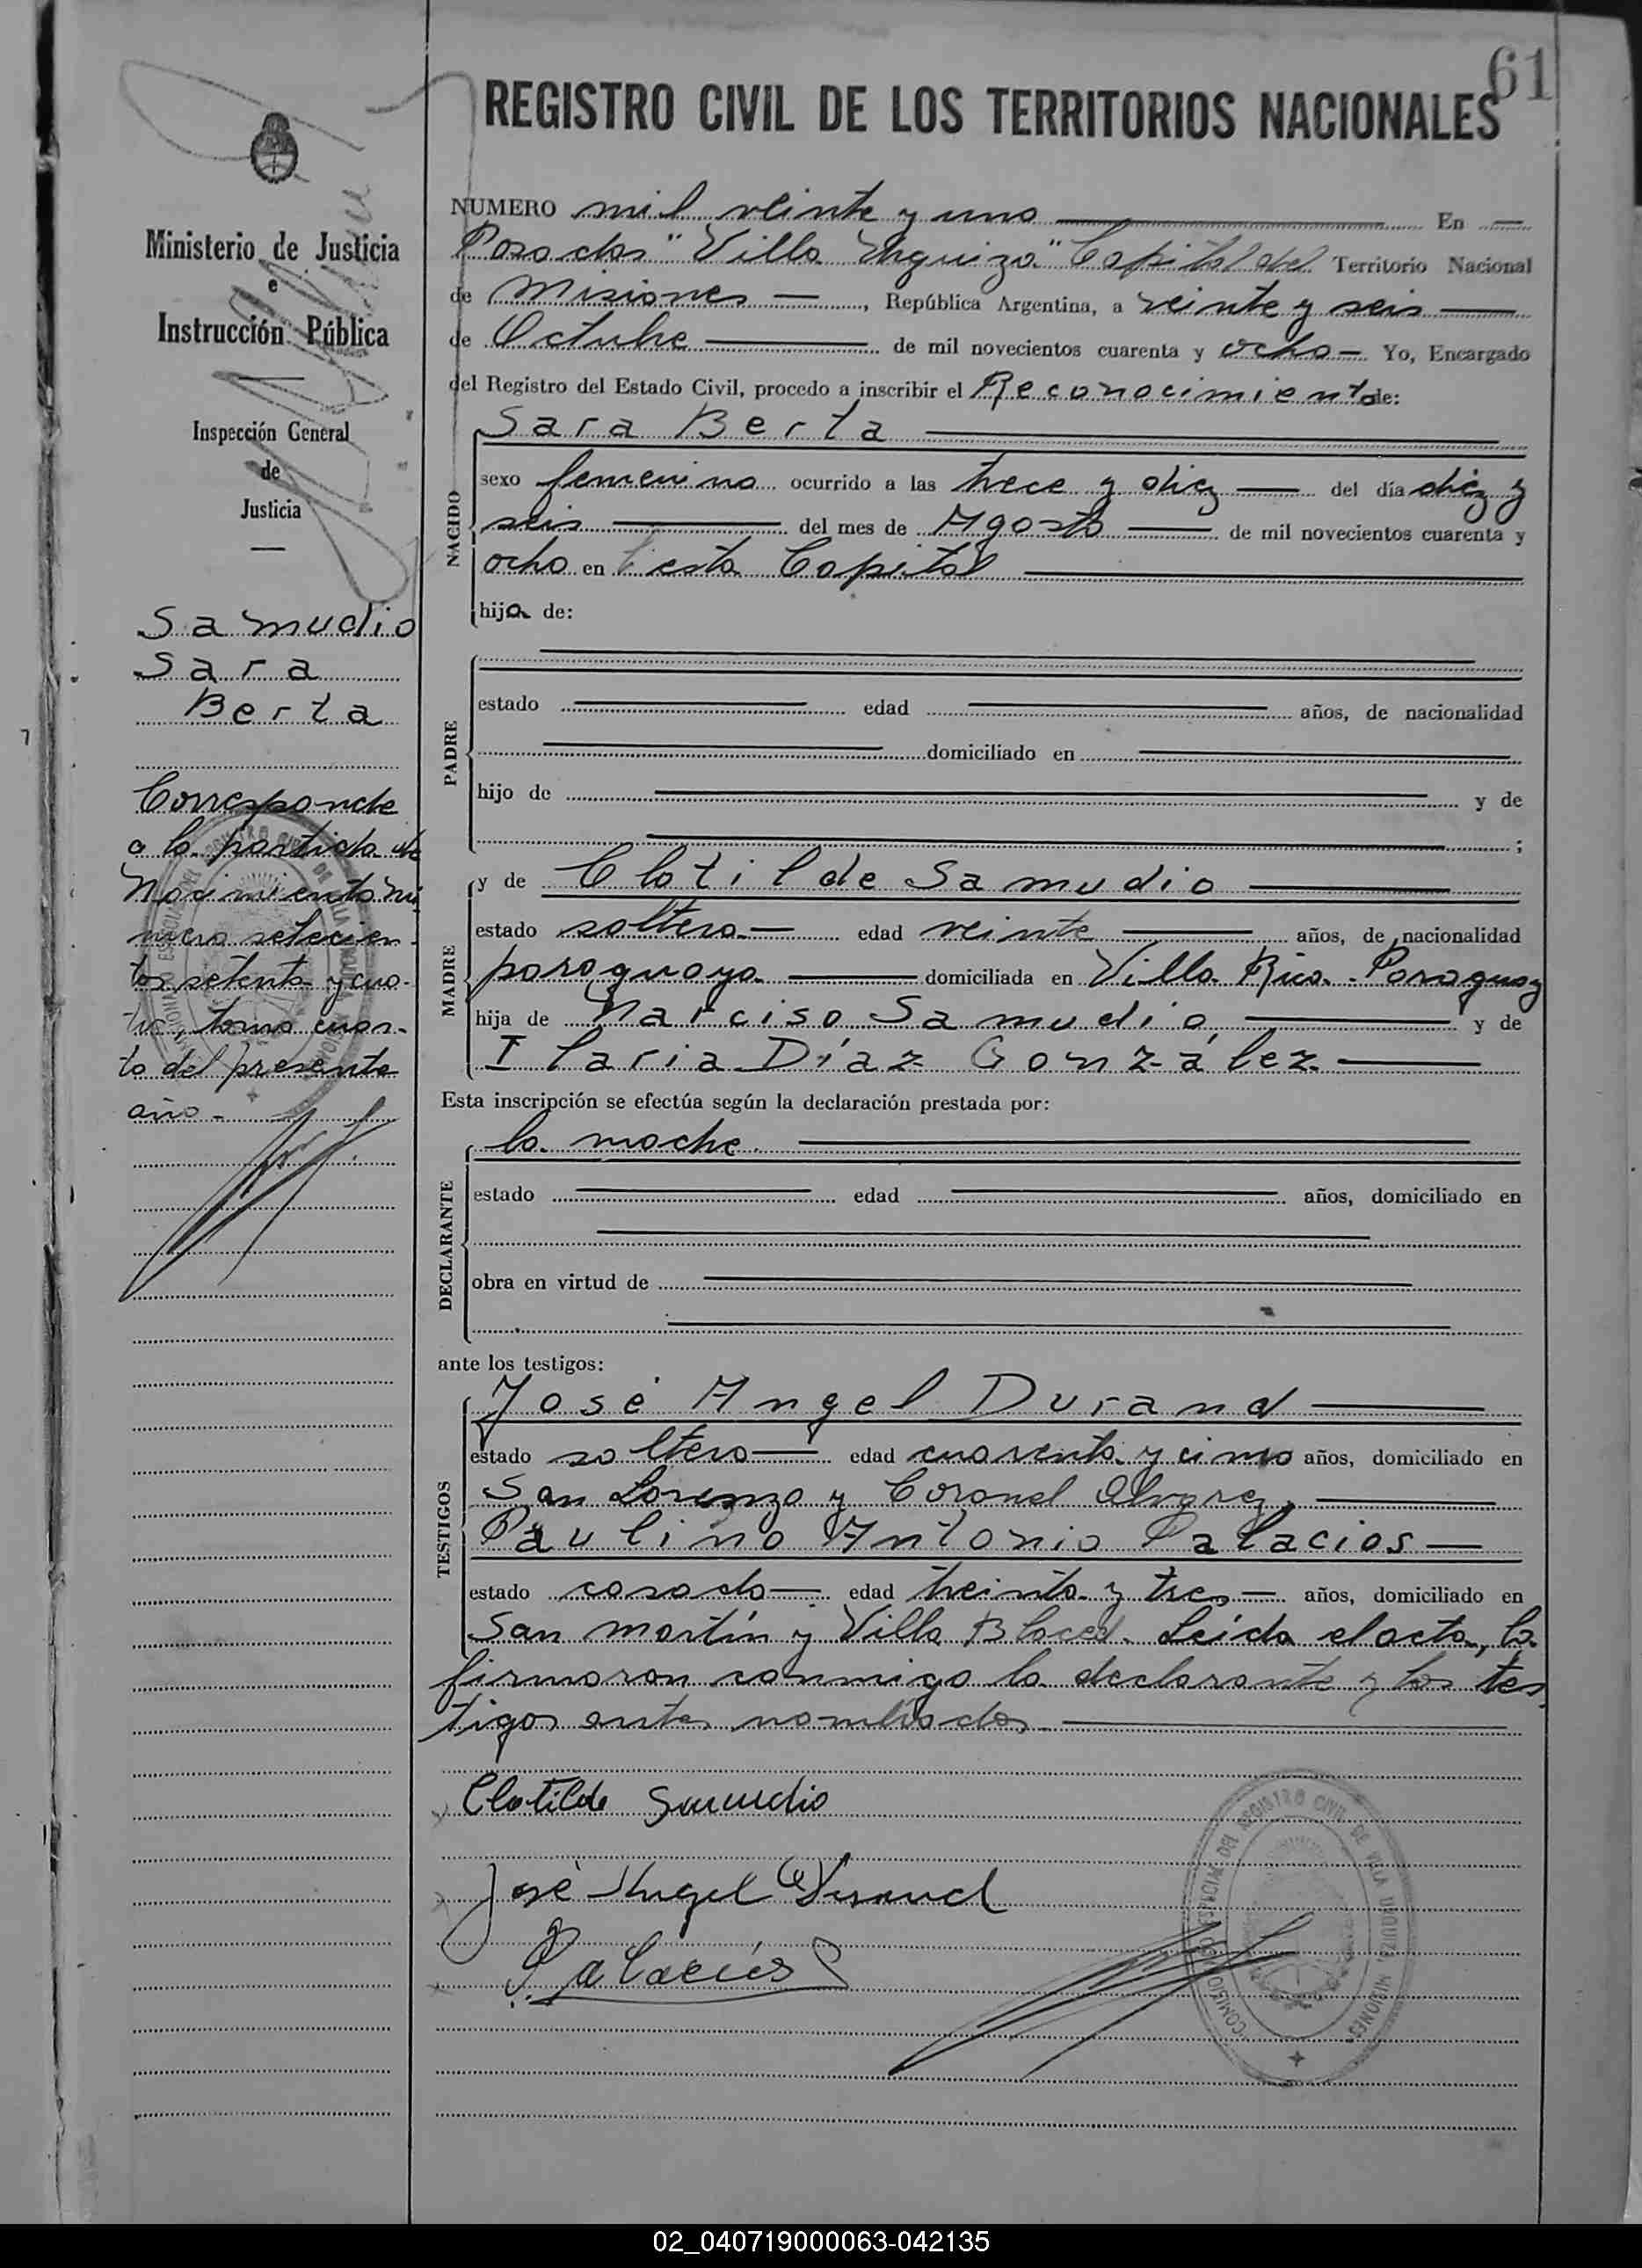 61
REGISTRO CIVIL DE LOS TERRITORIOS NACIONALES
Ministerio de Justicia
e
Instrucción Pública
Inspección General
de
Justicia
Samudio
Sara
Berta
Corresponde
a la partida de
Nacimiento nú
mero setecien-
tos setenta y cua-
tro, tomo cuar-
to del presente
año.-
NUMERO mil veinte y uno En
Posadas "Villa Urquiza" Capital del Territorio Nacional
de Misiones, República Argentina, a veinte y seis
de Octubre de mil novecientos cuarenta y ocho Yo, Encargado
del Registro del Estado Civil, procedo a inscribir el Reconocimiento de:
Sara Berta
NACIDO
sexo femenino ocurrido a las trece y diez del día diez y
seis del mes de Agosto de mil novecientos cuarenta y
ocho en esta Capital
hija de:
PADRE
estado edad años, de nacionalidad
domiciliado en
hijo de y de
;
MADRE
y de Clotilde Samudio
estado soltera edad veinte años, de nacionalidad
paraguaya domiciliada en Villa Rica - Paraguay
hija de Narciso Samudio y de
Ilaria Díaz González
Esta inscripción se efectúa según la declaración prestada por:
DECLARANTE
la madre
estado edad años, domiciliado en
obra en virtud de
ante los testigos:
TESTIGOS
José Angel Durand
estado soltero edad cuarenta y cinco años, domiciliado en
San Lorenzo y Coronel Alvarez
Paulino Antonio Palacios
estado casado edad treinta y tres años, domiciliado en
San Martín y Villa Blaced. Leída el acta, la
firmaron conmigo la declarante y los tes
tigos antes nombrados
Clotilde Samudio
José Angel Durand
Palacios
COMISIONADO ESPECIAL DEL REGISTRO CIVIL DE VILLA URQUIZA, MISIONES
02_040719000063-042135